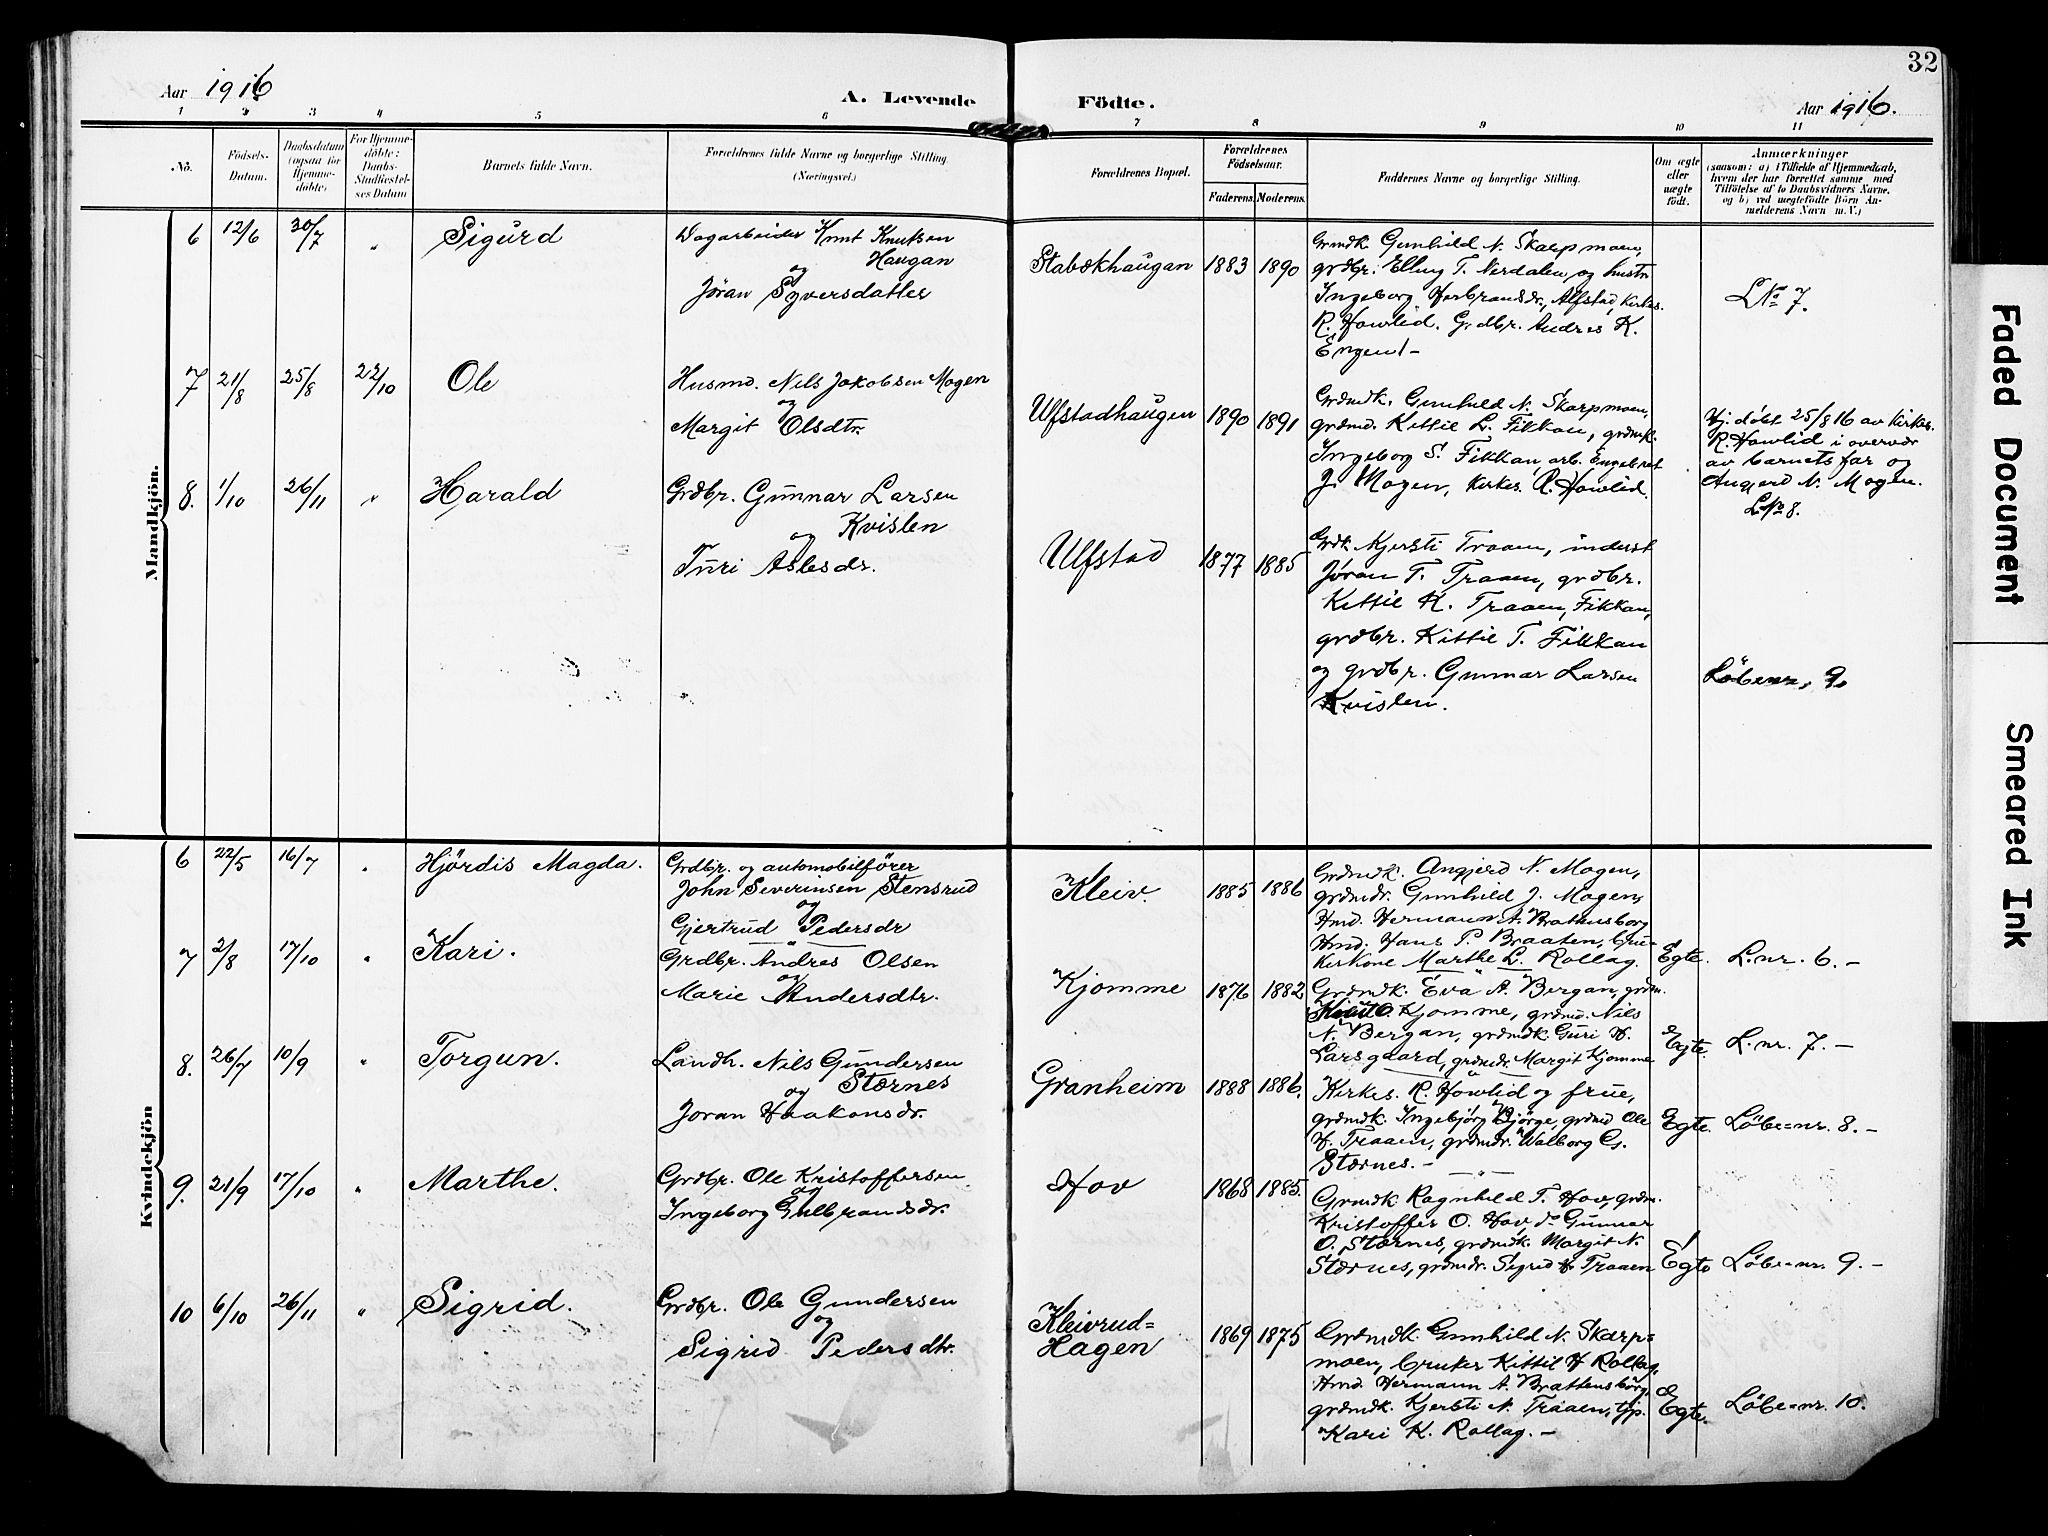 32
Aar 1916
A. Levende Födte.
Aar 1916.
1 2 3 4 5 6 7 8 9 10 11
No.
Födsels-
Datum.
Daabsdatum
(ogsaa for
Hjemme-
døbte)
For Hjemme-
döbte:
Daabs-
Stadfæstel-
ses Datum
Barnets fulde Navn.
Forældrenes fulde Navne og borgerlige Stilling.
(Næringsvei.)
Forældrenes Bopæl.
Forældrenes
Födselsaar.
Faderens Moderens
Faddernes Navne og borgerlige Stilling.
Om ægte
eller
uægte
født.
Anmærkninger
(saasom: a) i Tilfælde af Hjemmedaab,
hvem der har forrettet samme med
Tilföielse af to Daabsvidners Navne,
og b) ved uægtefödte Börn An-
melderens Navn m. V.)
Mandkjön.
6 12/6 30/7 " Sigurd
Dagarbeider Knut Knutsen
Haugan
og
Jøran Syversdatter
Stabækhaugan 1883 1890
Grmdk. Gunhild N. Skarpmoen,
grdbr. Elling T. Nerdalen og hustr.
Ingeborg Herbrandsdr., Alfstad, kirkes.
R. Howlid. Grdbr. Andres K.
Engen -
L No 7.
7 21/8 25/8 22/10 Ole
Husmd. Nils Jakobsen Mogen
og
Margit Olsdtr.
Ufstadhaugen 1890 1891
Grdmdk. Gunhild N. Skarpmoen,
grdmd. Kittil L. Fikkan, grdmk.
Ingeborg S. Fikkan, arb. Engebret
J. Mogen, kirkes. R. Howlid.
Hj. døbt 25/8 16 av kirkes.
R. Howlid i overvær
av barnets far og
Angjerd N. Mogen.
L No 8.
8. 1/10 26/11 " Harald
Grdbr. Gunnar Larsen
Kvislen
og
Turi Aslesdr.
Ulfstad 1877 1885
Grdk. Kjersti Traaen, inderst
Jøran T. Traaen, grdbr.
Kittil K. Traaen, Fikkan,
grdbr. Kittil T. Fikkan
og grdbr. Gunnar Larsen
Kvislen.
Löbenr. 9.
Kvindekjön
6 22/5 16/7 " Hjørdis Magda.
Grdbr. og automobilfører
John Severinsen Stensrud
og
Gjertrud Pedersdr
Kleiv. 1885 1886
Grdmdk. Angjerd N. Mogen,
grdmdr. Gunhild J. Mogen,
Hmd. Hermann A. Brattensborg
Hmd. Hans P. Braaten,
Kirkone Marthe L. Rollag.
Egte. L.nr. 6. -
7 2/8 17/10 " Kari.
Grdbr. Andres Olsen
og
Marie Andersdtr.
Kjomme 1876 1882
Grdmdk. Eva A. Bergan, grdm.
Knut O. Kjomme, grdmd. Nils
N. Bergan, grdmdk. Guri H.
Larsgaard, grdmdr. Margit Kjomme
Egte. L.nr. 7. -
8. 26/7 10/9 " Torgun.
Landh. Nils Gundersen
Stærnes
og
Joran Haakonsdr.
Granheim 1888 1886.
Kirkes. R. Howlid og frue,
grdmdk. Ingebjørg Bjørge, grdmd Ole
H. Traaen, grdmdr. Walborg G.
Stærnes. -
Egte. Löbe=nr. 8. -
9. 21/9 17/10 " Marthe.
Grdbr. Ole Kristoffersen
og
Ingeborg Gulbrandsdr.
Hov 1868 1885.
Grmdk Ragnhild T. Hov, grdm.
Kristoffer O. Hov, do Gunnar
O. Stærnes, grdmdk. Margit N.
Stærnes, grdmdr. Sigrid H. Traaen
Egte Löbe=nr. 9. -
10 6/10 26/11 " Sigrid.
Grdbr. Ole Gundersen
og
Sigrid Pedersdtr.
Kleivrud=
Hagen 1869 1875
Grdmdk. Gunhild N. Skarp=
moen, bruker Kittil H Rollag,
Hmd. Hermann A. Brattensborg,
grdmdk. Kjersti N. Traaen, tjp.
Kari K. Rollag. -
Egte. Löbe=nr. 10.
Faded Document
Smeared Ink